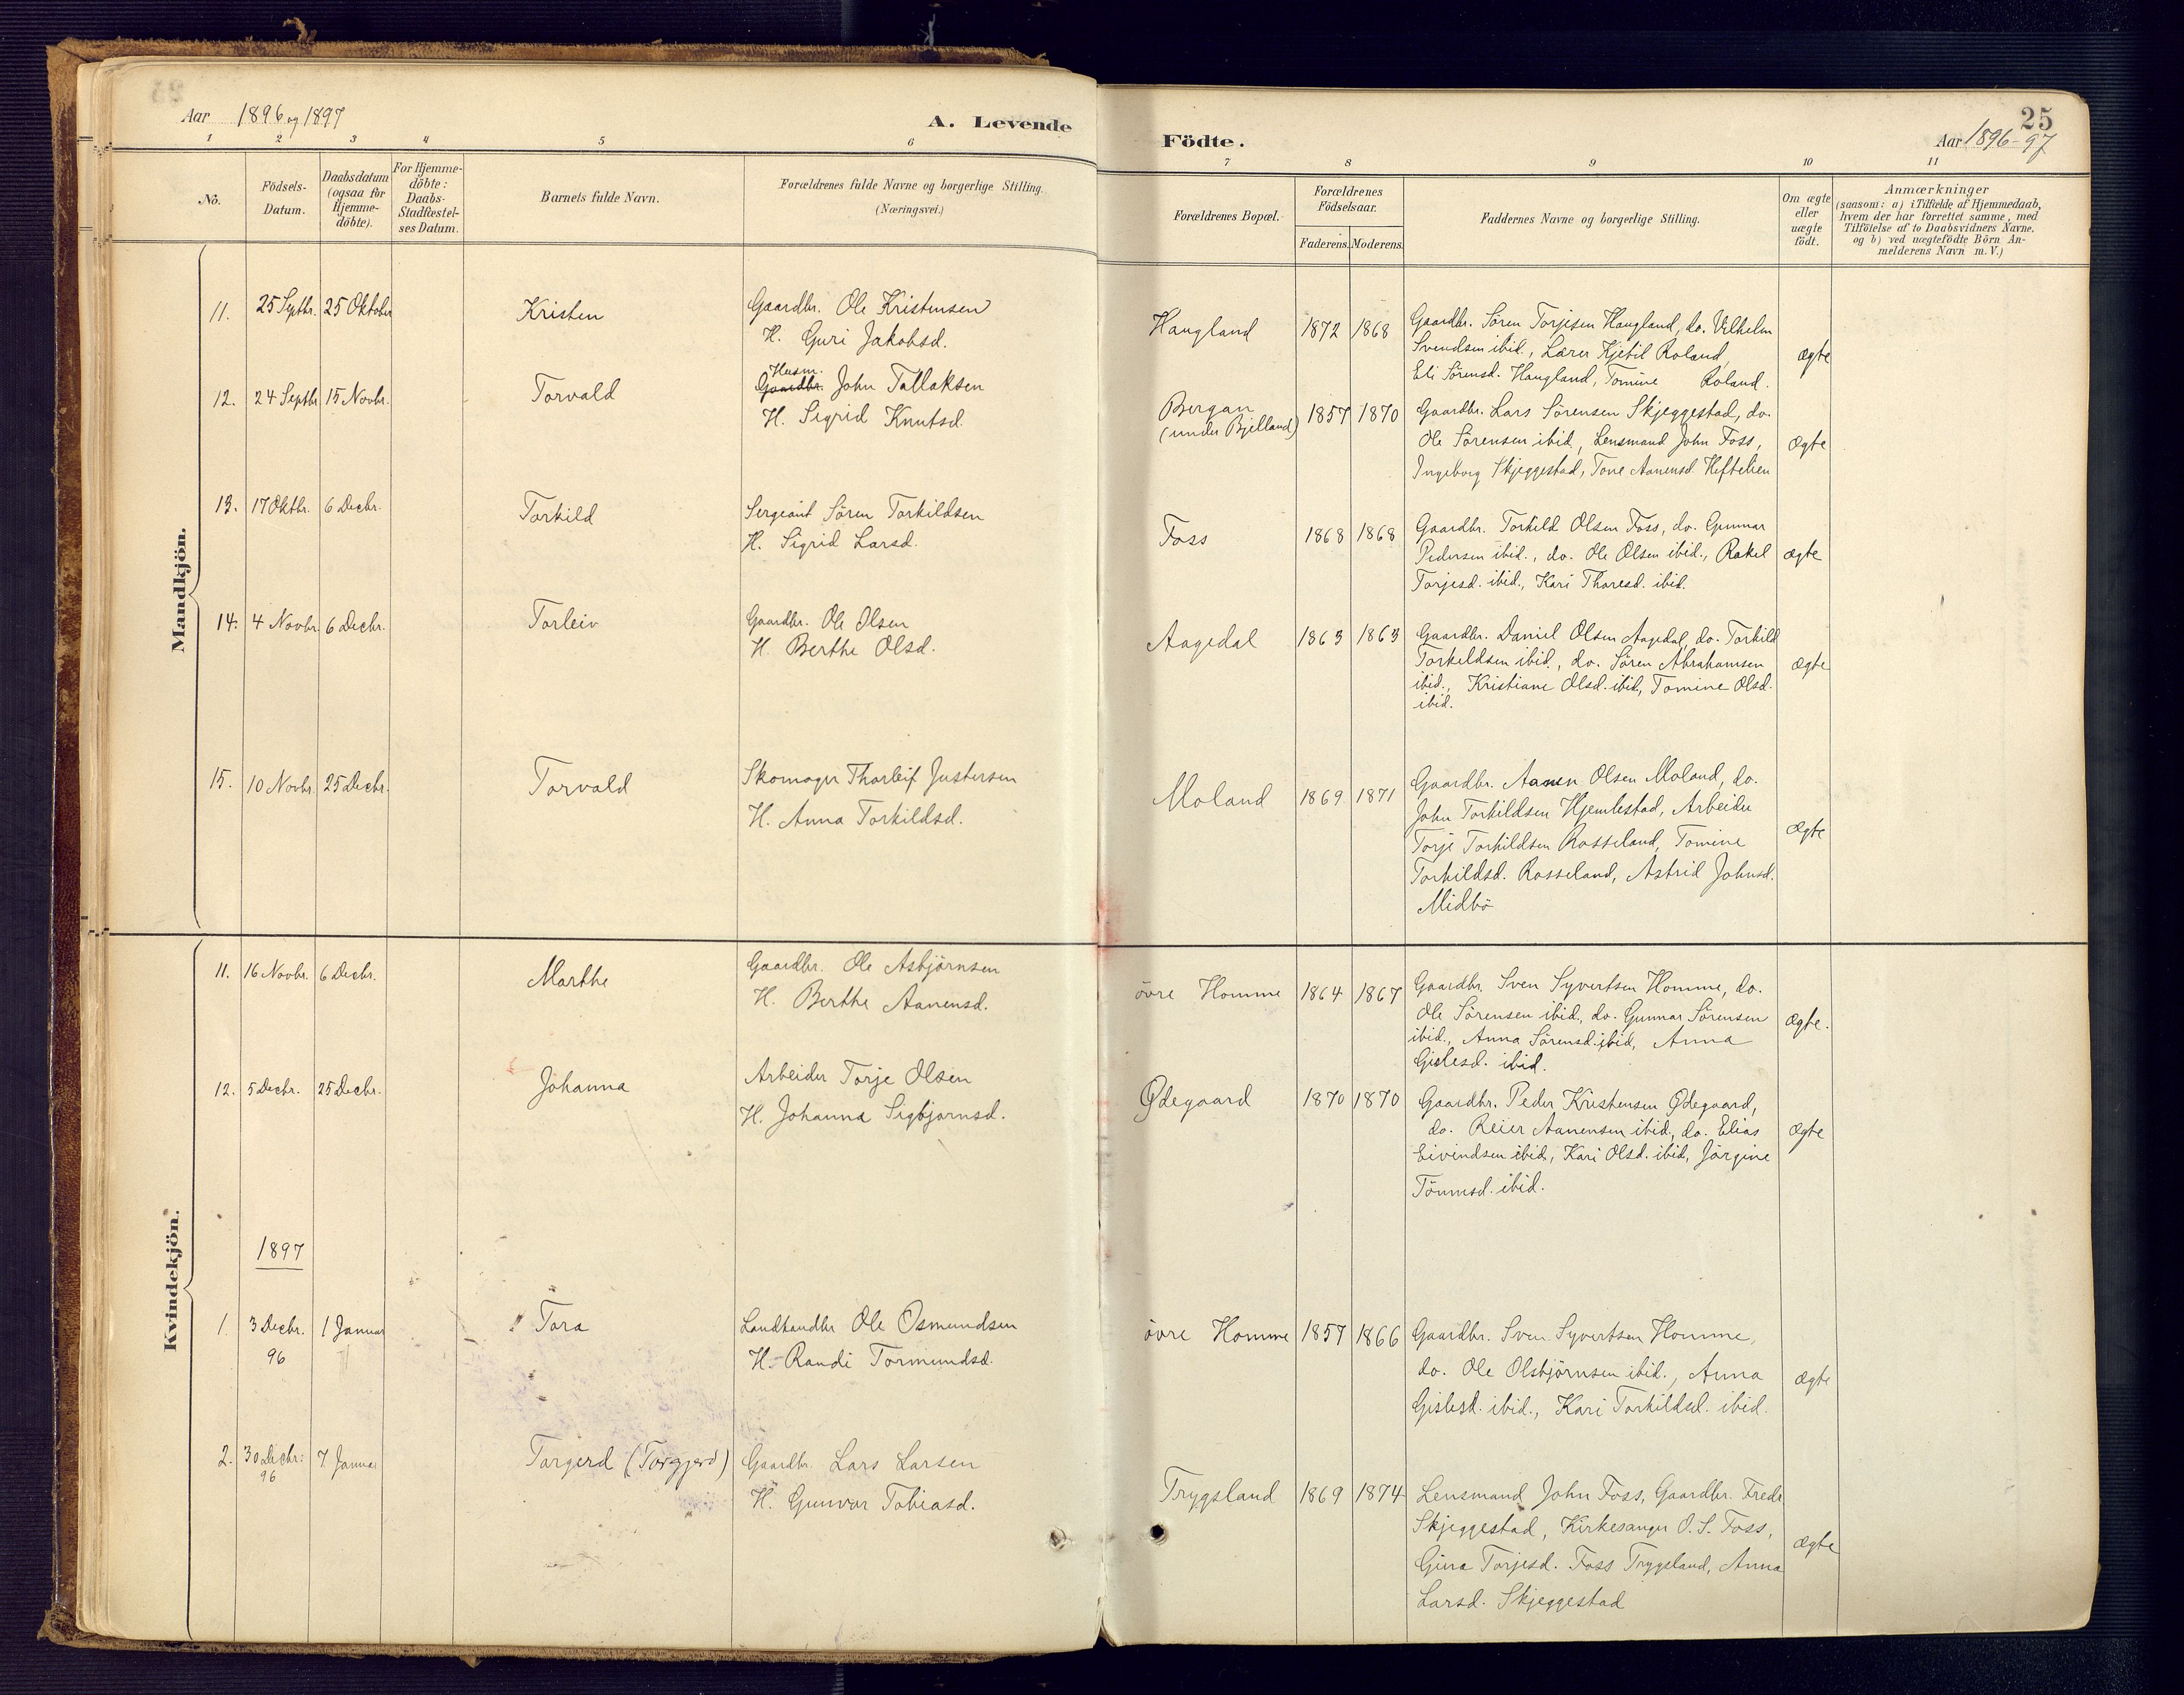 Aar 1896 og 1897
A. Levende
Födte.
25
Aar 1896-97
1 2 3 4 5 6
7 8 9 10 11
No.
Födsels-
Datum.
Daabsdatum
(ogsaa for
Hjemme-
döbte).
For Hjemme-
döbte:
Daabs-
Stadfæstel-
ses Datum.
Barnets fulde Navn.
Forældrenes fulde Navne og borgerlige Stilling.
(Næringsvei.)
Forældrenes Bopæl.
Forældrenes
Födselsaar.
Faderens. Moderens.
Faddernes Navne og borgerlige Stilling.
Om ægte
eller
uægte
födt.
Anmærkninger
(saasom: a) i Tilfælde af Hjemmedaab,
hvem der har forrettet samme, med
Tilföielse af to Daabsvidners Navne.
og b) ved uægtefödte Börn An-
melderens Navn m.V.)
Mandkjön.
11. 25 Septbr. 25 Oktober
Kristen
Gaardbr. Ole Kristensen
H. Guri Jakobsd.
Haugland 1872 1868
Gaardbr. Sören Torjesen Haugland, do. Vilhelm
Svendsen ibid., Lærer Kjetil Roland,
Eli Sörensd. Haugland, Tomine Roland.
ægte
12. 24 Septbr 15 Novbr.
Torvald
Husm.
Gaardbr. John Tallaksen
H. Sigrid Knutsd.
Bergan
(under Bjelland)
1857 1870
Gaardbr. Lars Sörensen Skjeggestad, do.
Ole Sörensen ibid, Lensmand John Foss,
Ingeborg Skjeggestad, Tone Aanensd. Heftelien
ægte
13. 17 Oktbr. 6 Decbr.
Torkild
Sergeant Sören Torkildsen
H. Sigrid Larsd.
Foss 1868 1868
Gaardbr. Torkild Olsen Foss, do. Gunnar
Pedersen ibid., do. Ole Olsen ibid., Rakel
Torjesd. ibid., Kari Tharesd. ibid.
ægte
14. 4 Novbr. 6 Decbr.
Torleiv
Gaardbr. Ole Olsen
H. Berthe Olsd.
Aagedal 1863 1863
Gaardbr. Daniel Olsen Aagedal, do. Torkild
Torkildsen ibid., do. Sören Abrahamsen
ibid., Kristiane Olsd. ibid, Tomine Olsd.
ibid.
ægte
15. 10 Novbr. 25 Decbr.
Torvald
Skomager Thorleif Justersen
H. Anna Torkildsd.
Moland 1869 1871
Gaardbr. Aanen Olsen Moland, do.
John Torkildsen Hjemlestad, Arbeider
Torje Torkildsen Rosseland, Tomine
Torkildsd. Rosseland, Astrid Johnsd.
Midbö
ægte
Kvindekjön.
11. 16 Novbr. 6 Decbr.
Marthe
Gaardbr. Ole Asbjörnsen
H. Berthe Aanensd.
övre Homme 1864 1867
Gaardbr. Sven Syvertsen Homme, do.
Ole Sörensen ibid., do. Gunnar Sörensen
ibid., Anna Sörensd. ibid, Anna
Gislesd. ibid.
ægte.
12. 5 Decbr. 25 Decbr.
Johanna
Arbeider Torje Olsen
H. Johanna Sigbjørnsd.
Ødegaard 1870 1870
Gaardbr. Peder Kristensen Ødegaard,
do. Reier Aanensen ibid, do. Elias
Eivindsen ibid, Kari Olsd. ibid, Jörgine
Tönnesd. ibid.
ægte
1897
1. 3 Decbr.
96
1 Januar
Tora
Landhandler Ole Osmundsen
H. Randi Tormundsd.
övre Homme 1857 1866
Gaardbr. Sven Syvertsen Homme,
do. Ole Olsbjörnsen ibid., Anna
Gislesd. ibid., Kari Torkildsd. ibid.
ægte
2. 30 Decbr.
96
7 Januar
Torgerd (Torgjerd)
Gaardbr. Lars Larsen
H. Gunvor Tobiasd.
Trygsland 1869 1874
Lensmand John Foss, Gaardbr. Fredr.
Skjeggestad, Kirkesanger O. S. Foss,
Gura Torjesd. Foss Trygsland, Anna
Larsd. Skjeggestad
ægte